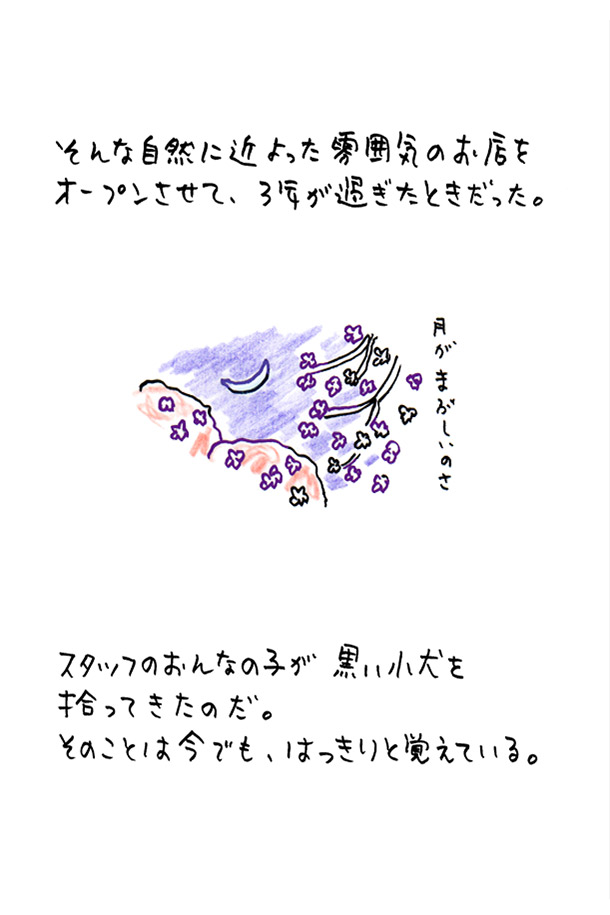 そんな自然に近よった雰囲気のお店を
オープンさせて、3年が過ぎたときだった。
月がまぶしいのさ
スタッフのおんなの子が黒い小犬を
拾ってきたのだ。
そのことは今でも、はっきりと覚えている。